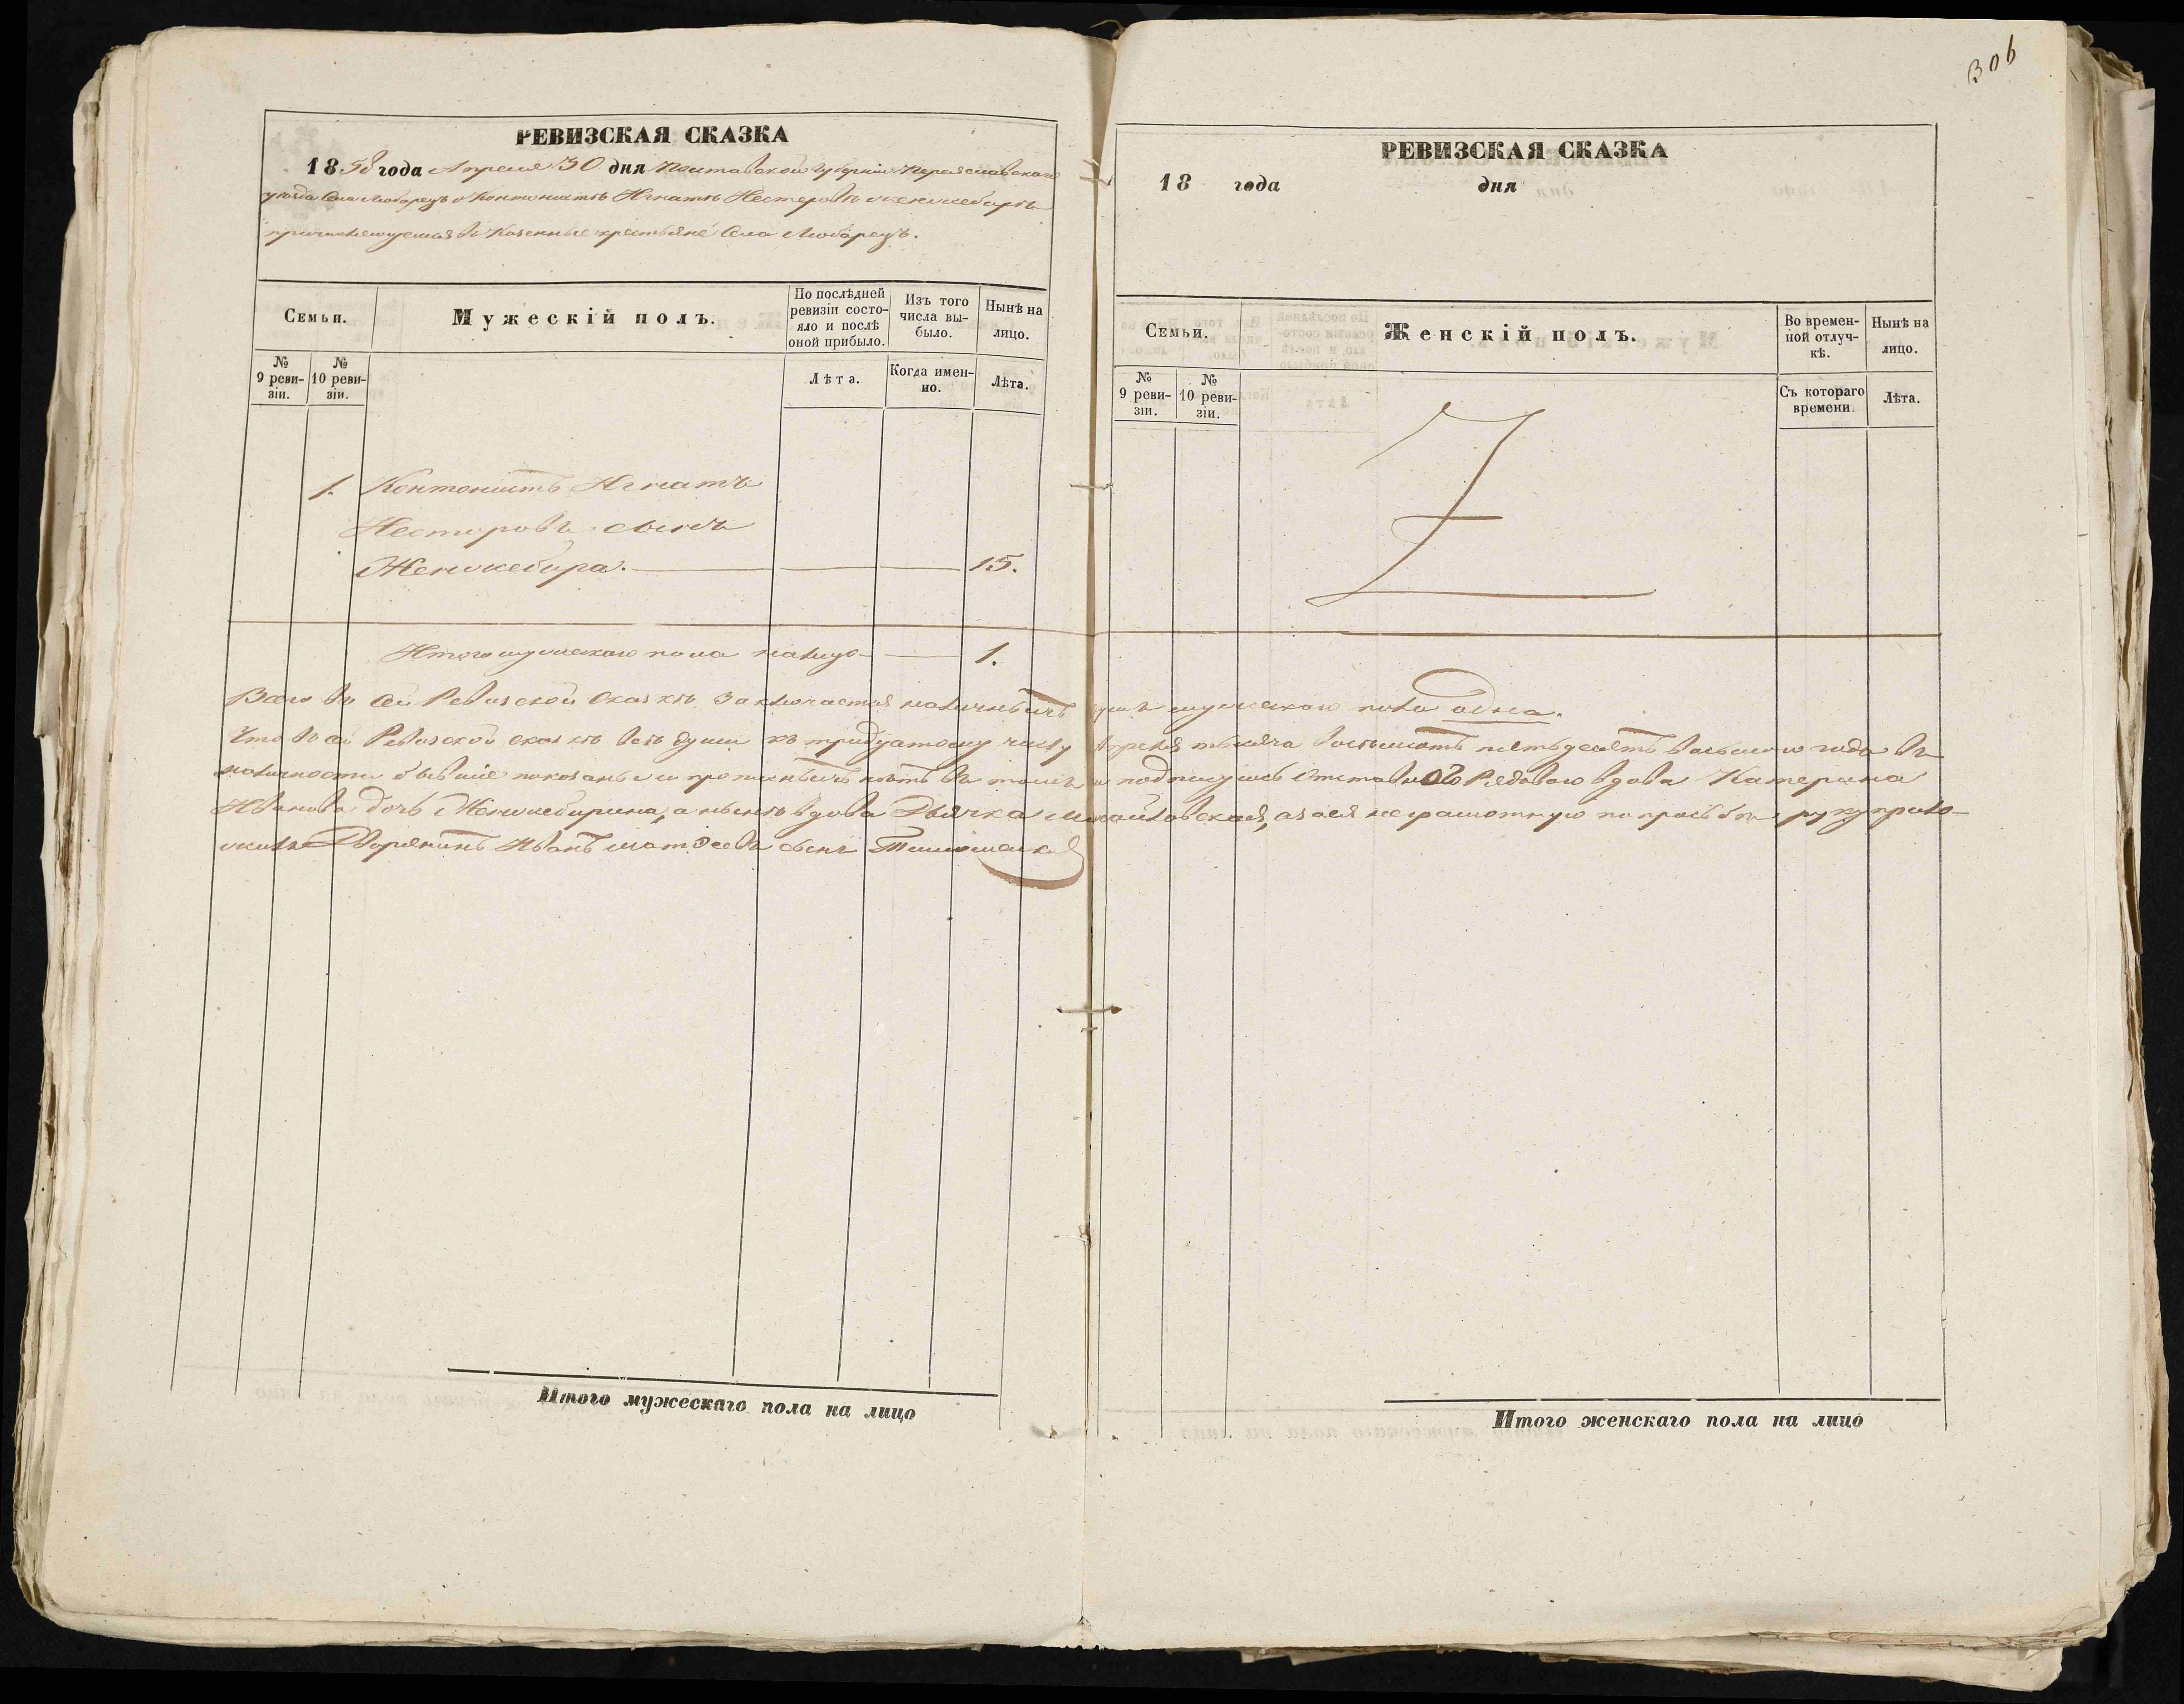 306
РЕВИЗСКАЯ СКАЗКА
1858 года Апреля 30 дня Полтавской Губерніи Переяславскаго
уезда Села Любарецъ о Кантонистѣ Игнатѣ Нестеровѣ
причисляющемся въ Казенные крестьяне Села Любарецъ.
Семьи.
Мужескій полъ.
По послѣдней ревизіи состояло и послѣ оной прибыло.
Изъ того числа выбыло.
Нынѣ на лицо.
№ 9 ревизіи.
№ 10 ревизіи.
Лѣта.
Когда именно.
Лѣта.
1. Кантонистъ Игнатъ
Нестеровъ сынъ
Женжебира. 15.
Итого мужескаго пола налицо 1.
РЕВИЗСКАЯ СКАЗКА
18 года дня
Семьи.
Женскій полъ.
Во временной отлучкѣ.
Нынѣ на лицо.
№ 9 ревизіи.
№ 10 ревизіи.
Съ котораго времени.
Лѣта.
Всего въ сей Ревизской сказкѣ заключается наличныхъ душъ мужескаго пола одна.
Что въ сей Ревизской сказкѣ всѣ души къ тридцатому числу Апреля тысяча восемьсотъ пятьдесятъ восьмого года въ
наличности бывшіе показаны и прописныхъ нѣтъ въ томъ и подписуюсь Отставного Рядового вдова Катерина
Иванова дочь Женжебирина, а нынѣ вдова Дьячка Михайловская, а за нея неграмотную по прозьбѣ руку прило-
жилъ Дворянинъ Иванъ Матѳеевъ сынъ
Итого мужескаго пола на лицо
Итого женскаго пола на лицо